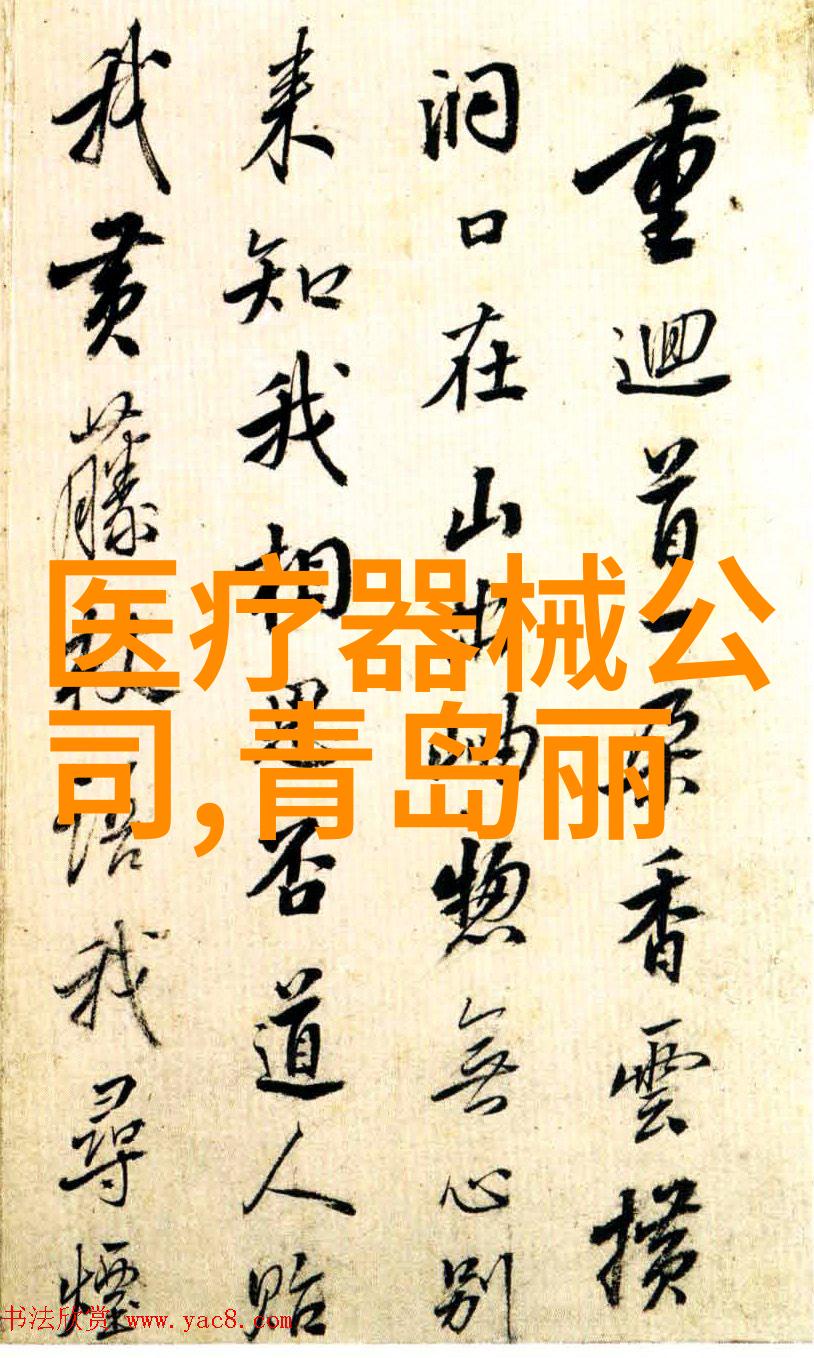 重迴首一朵香雲横
洞口在山出岫惣無心别
来知我相思否道人貽
我黄藤杖我尋煙
医疗器械公
司,青岛丽
书法欣赏 www.yac8.com